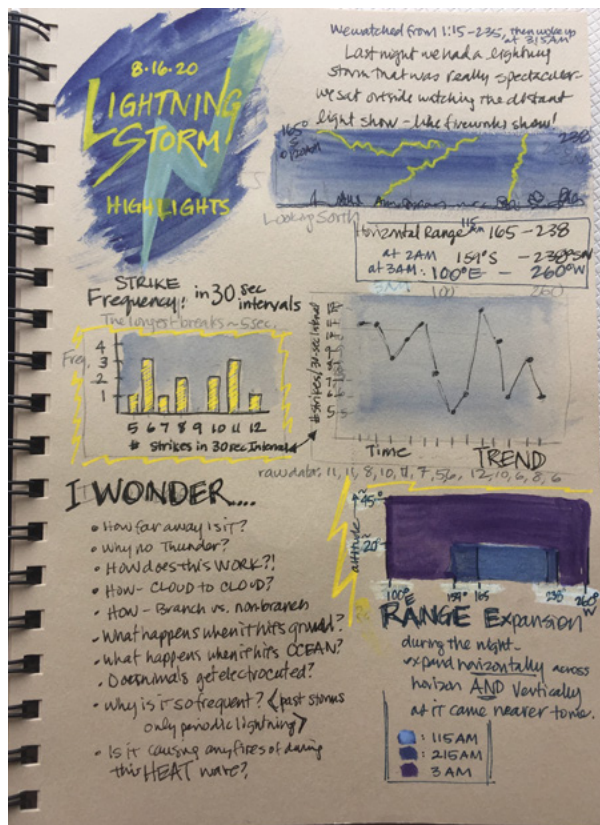 8·16·20
LIGHTNING
STORM
HIGHLIGHTS
We watched from 1:15-235, then woke up
at 315AM
Last night we had a lightning
storm that was really spectacular-
we sat outside watching the distant
light show - like fireworks show!
165°
S
238
Looking South
Horizontal Range 115 AM 165 - 238
at 2AM 159°S - 238°SW
at 3AM: 100°E - 260°W
100 260
STRIKE
Frequency: in 30 sec
intervals
The longest breaks ~ 5sec.
Freq.
4
3
2
1
5 6 7 8 9 10 11 12
# strikes in 30 sec Interval
#strikes/30-sec Interval
Time TREND
raw data: 11, 11, 8, 10, 11, 7, 5, 6, 12, 10, 6, 8, 6
I WONDER....
• How far away is it?
• Why no Thunder?
• How does this WORK?!
• How - CLOUD to CLOUD?
• How - Branch vs. nonbranch
• What happens when it hits ground?
• What happens when it hits OCEAN?
• Do animals get electrocuted?
• Why is it so frequent? <past storms
only periodic lightning>
• Is it causing any fires during
this HEAT wave?
altitude
45°
20°
100°E 159° 165 238° 260°W
RANGE Expansion
during the night...
expand horizontally across
horizon AND vertically
as it came nearer to me.
: 115AM
: 215AM
: 3AM